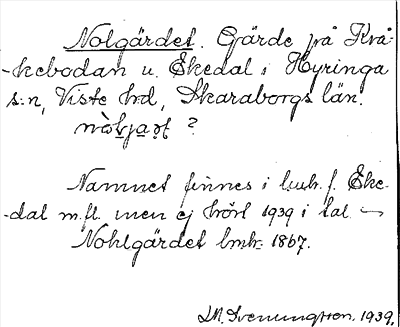 Nolgärdet. Gärde på Krå-
-kebodan u. Ekedal i Hyringa
s:n, Viste hd, Skaraborgs län.
?
Namnet finnes i lmh. f. Eke-
-dal m.fl. men ej hört 1939 i tal
Nohlgärdet lmh: 1867.
1939.